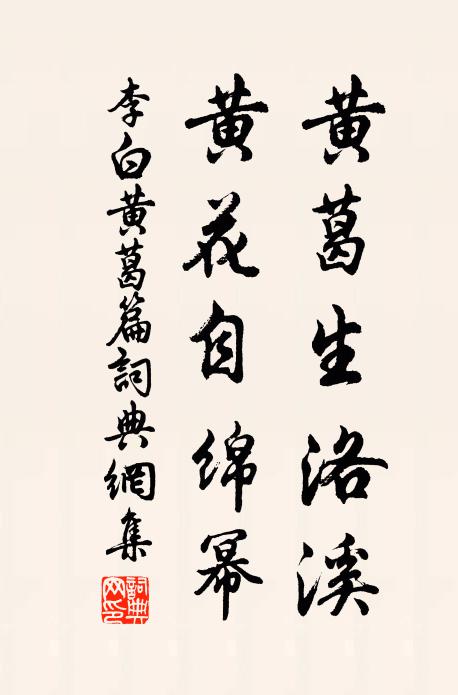 黄葛生洛溪
黄花自绵幂
李白黄葛篇詞典網集
詞典
网印